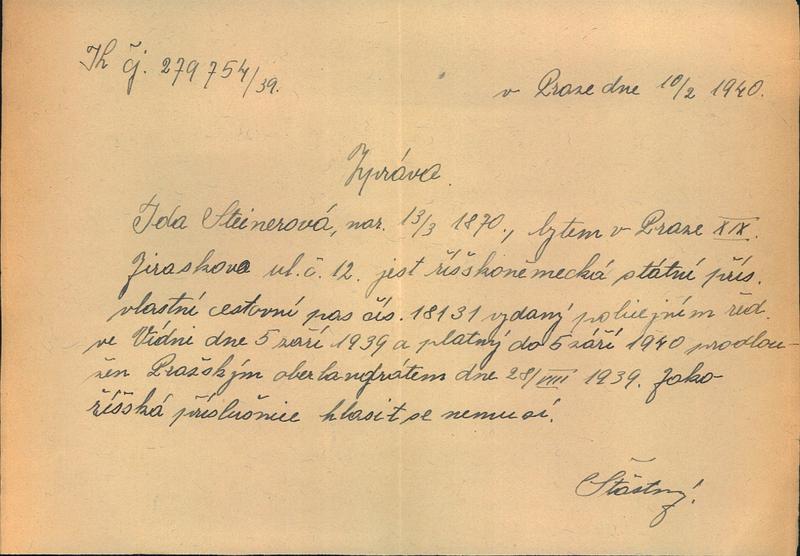 Th čj. 279754/39.
v Praze dne 10/2 1940.
Zpráva.
Ida Steinerová, nar. 13/3 1870., bytem v Praze XIX.
Jiraskova ul. č. 12. jest říšskoněmecká státní přís.
vlastní cestovní pas čís. 18131 vydaný policejním řed.
ve Vídni dne 5 září 1939 a platný do 5 září 1940 prodlou-
žen Pražským oberlandrátem dne 28/VIII 1939. Jako
říšská příslušnice hlasit se nemusí.
Šťastný.